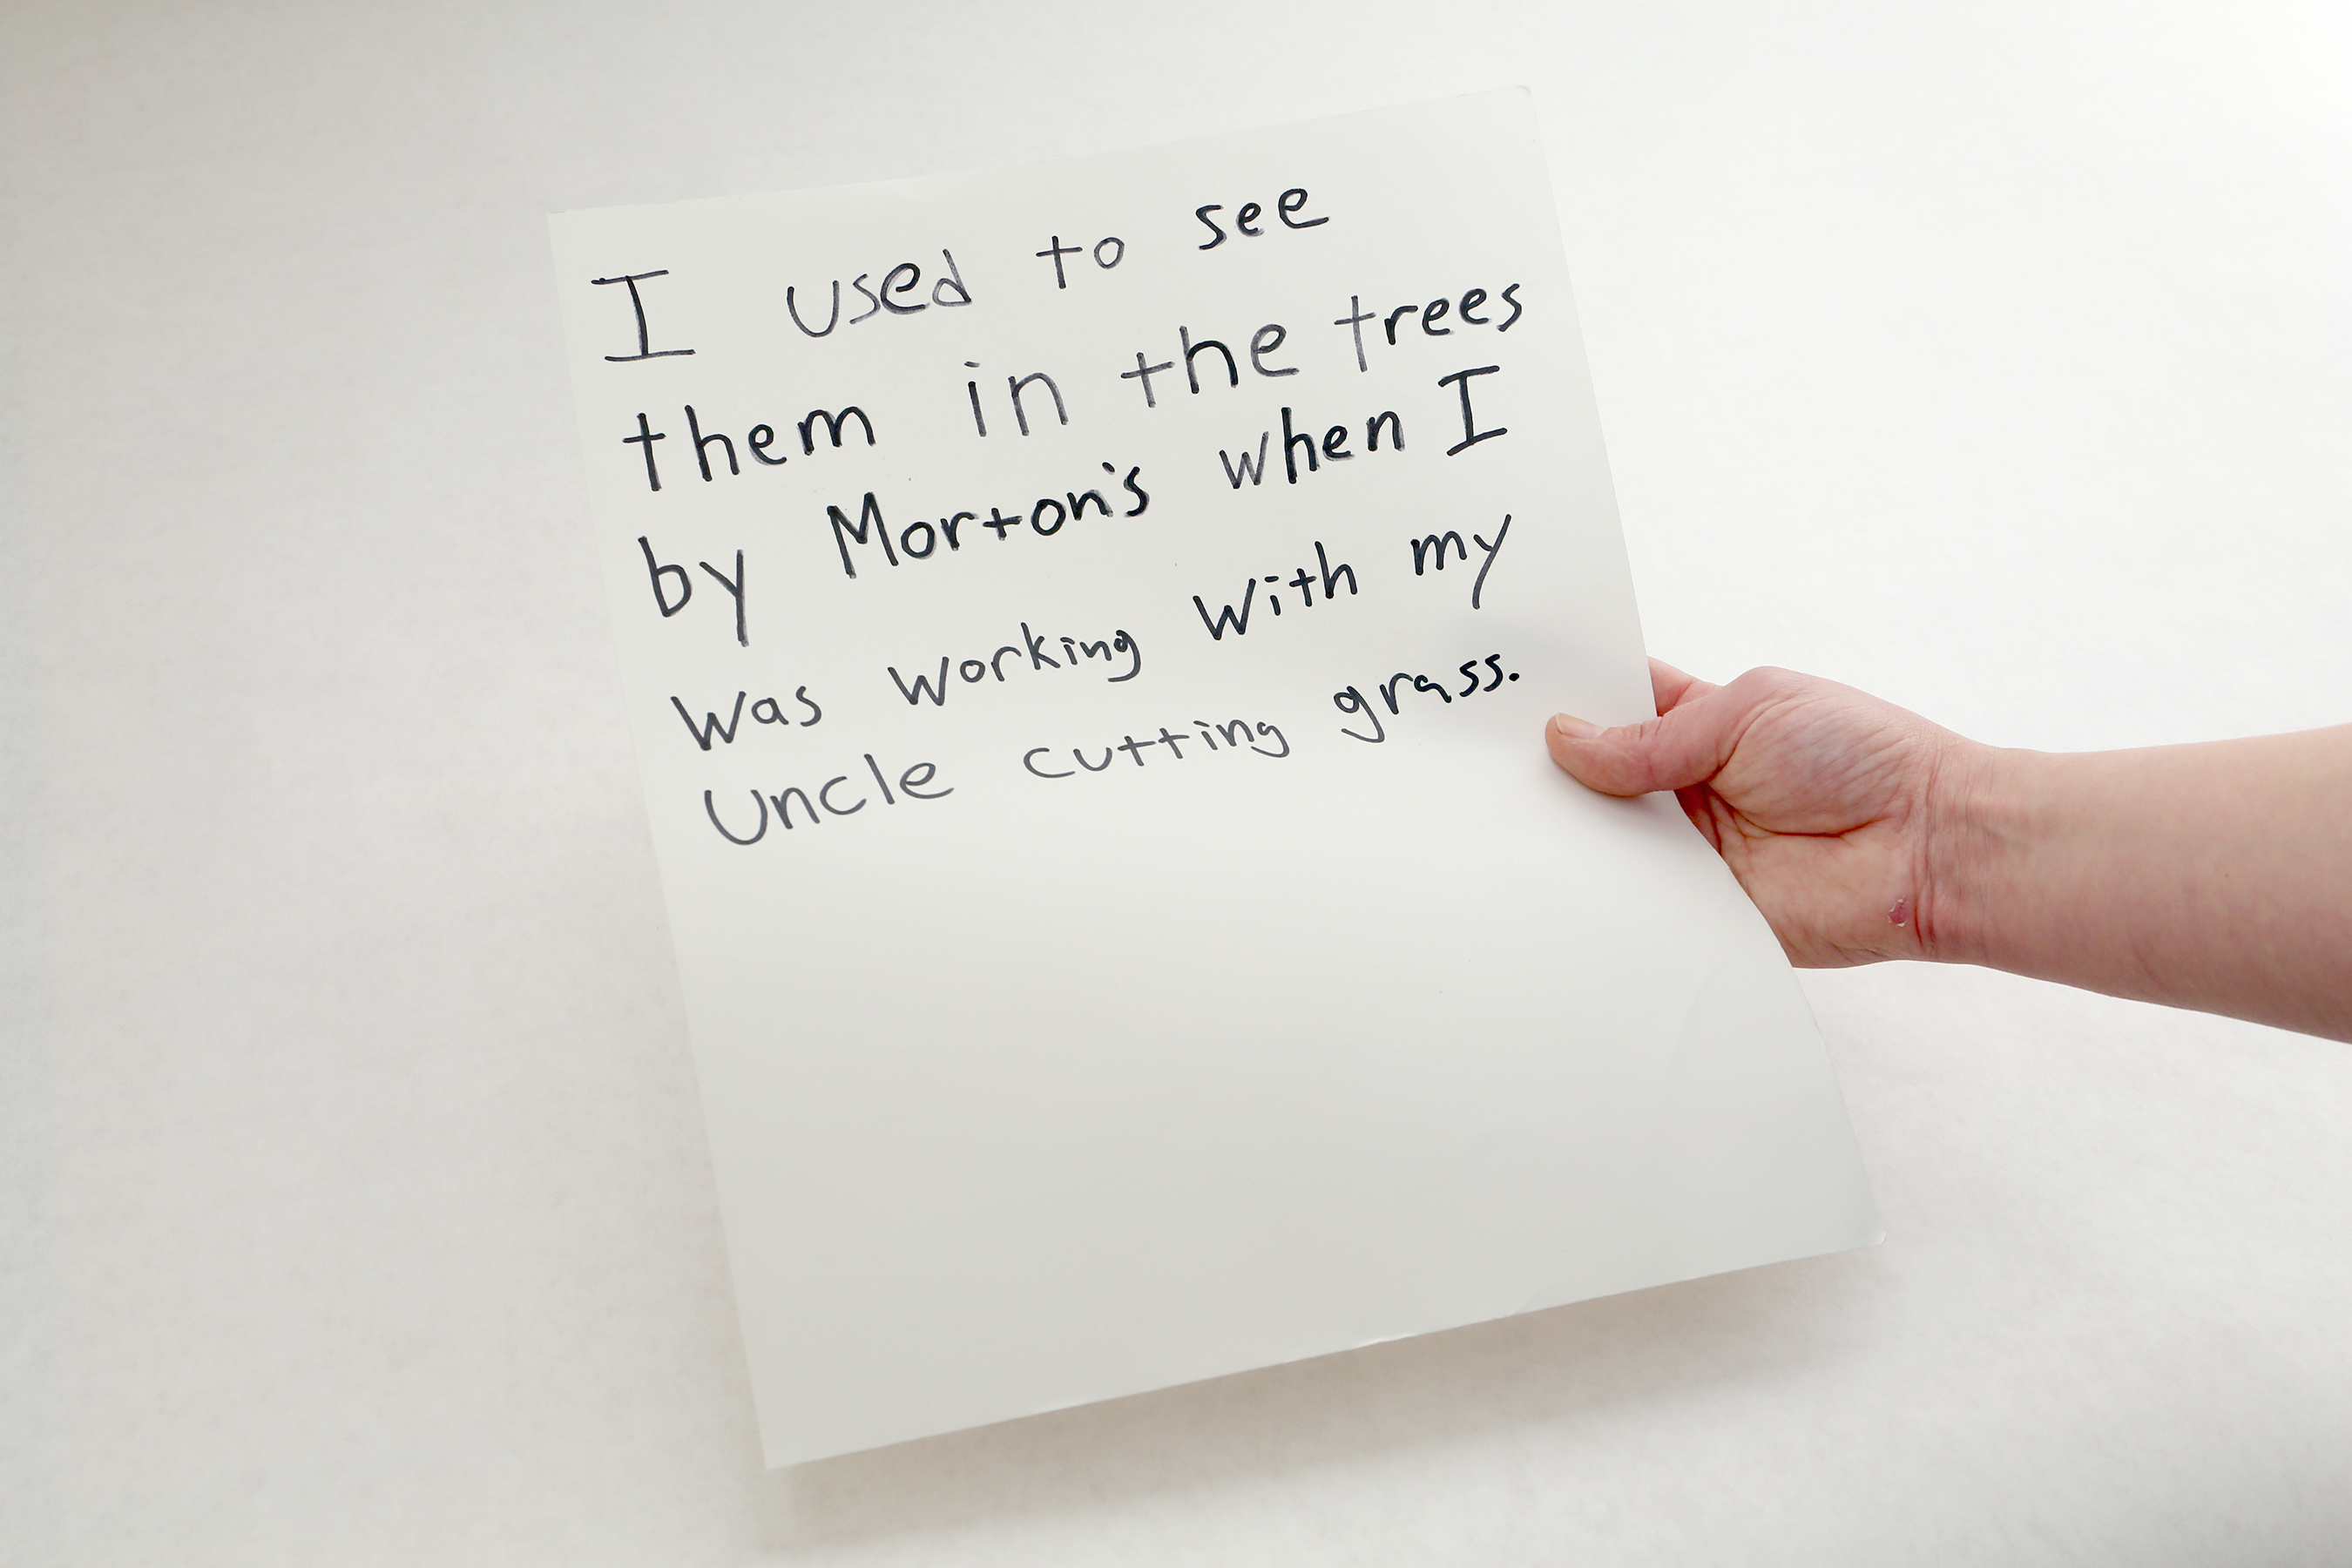 I used to see
them in the trees
by Morton's when I
was working with my
Uncle cutting grass.